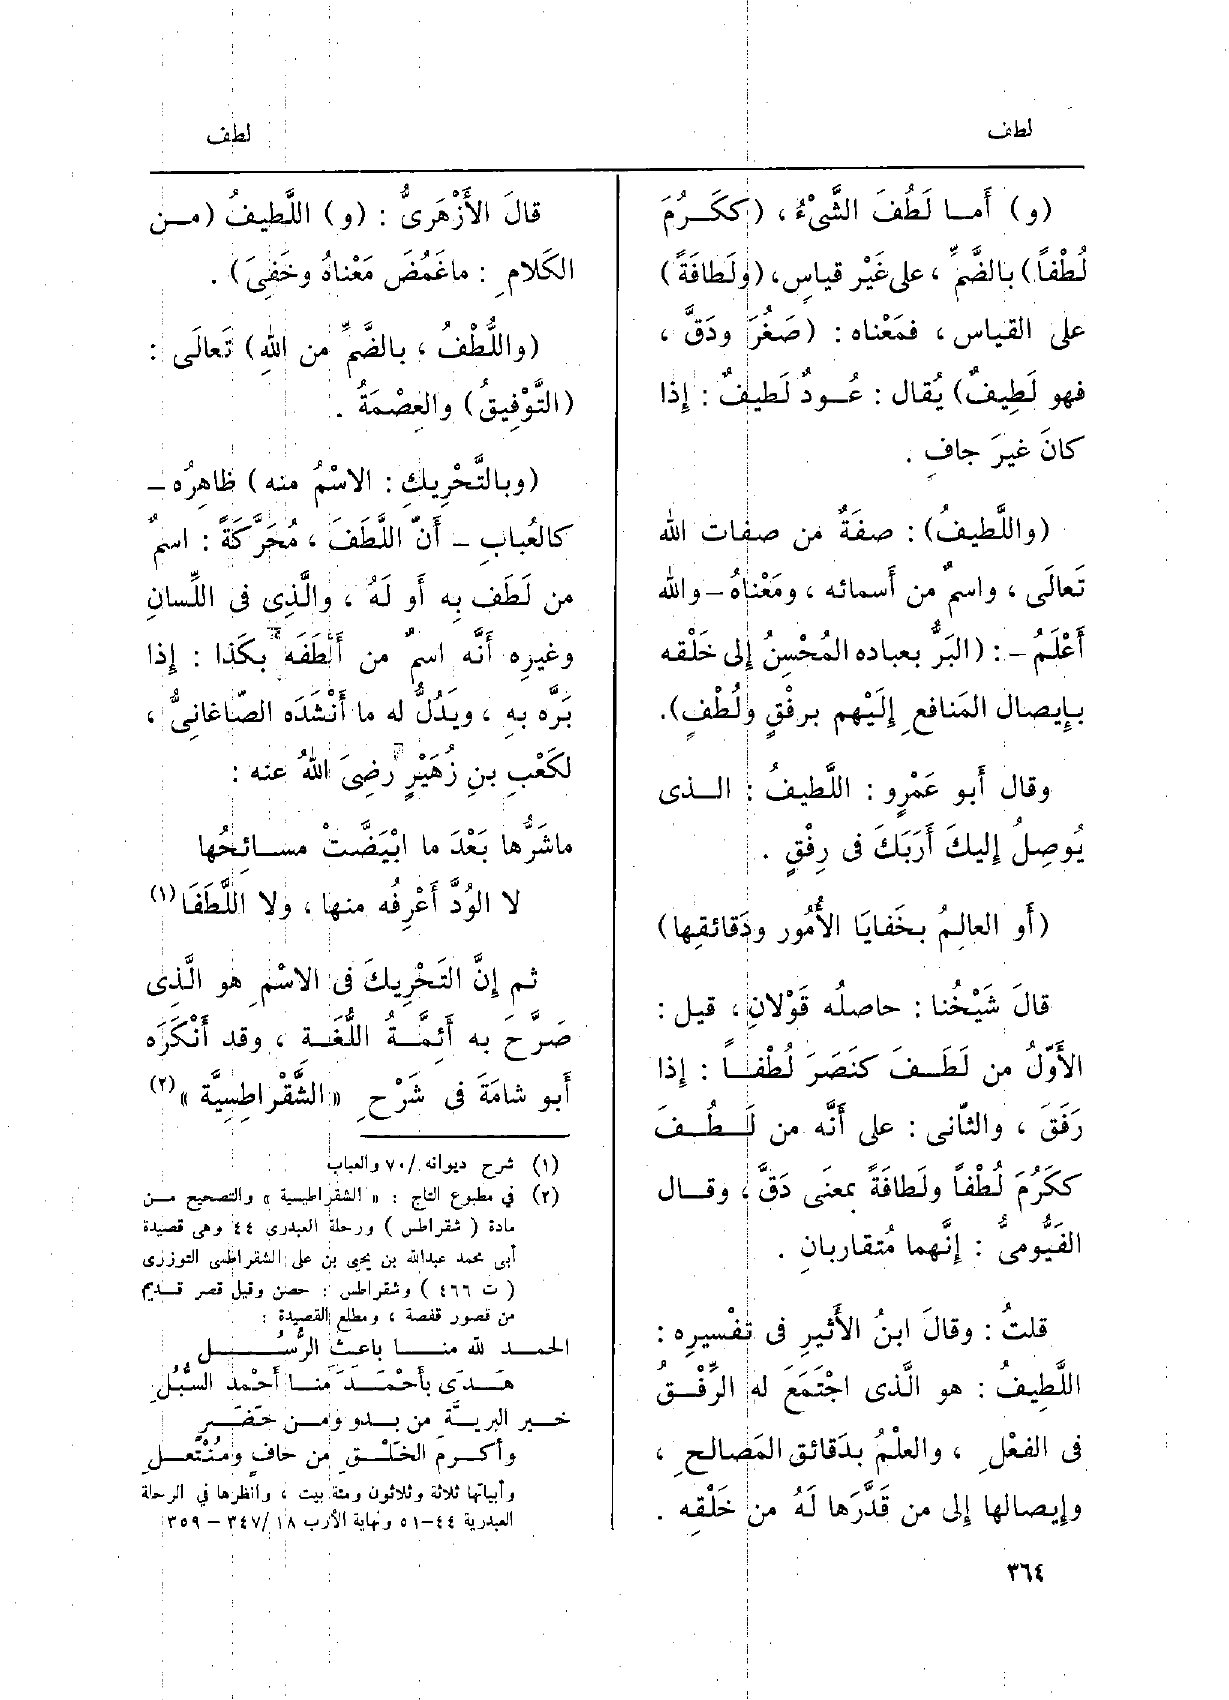 لطف
لطف
(و) أَمـا لَطُفَ الشَّىْءُ ، (ككَـرُمَ
لُطْفاً) بالضَّمِّ ، على غَيْر قياسٍ، (ولَطافَةً)
على القياس ، فمَعْناه : (صَغُرَ ودَقَّ ،
فهو لَطِيفٌ) يُقال : عُـودٌ لَطيفٌ : إذا
كانَ غيرَ جافٍ .
(واللَّطيفُ) : صفَةٌ من صفات الله
تَعالَى ، واسمٌ من أسمائه ، ومَعْناهُ – والله
أَعْلَمُ – : (البَرُّ بعباده المُحْسِنُ إلى خَلْقه
بإيصال المَنافع إلَيْهم برفْقٍ ولُطْفٍ).
وقال أبو عَمْرٍو : اللَّطيفُ : الـذى
يُوصِلُ إليكَ أَرَبَكَ فى رِفْقٍ .
(أو العالِمُ بخَفايَا الأُمُور ودَقائقِها)
قالَ شَيْخُنا : حاصلُه قَوْلانِ ، قيل :
الأَوّلُ من لَطَـفَ كنَصَرَ لُطْفـاً : إذا
رَفَقَ ، والثّانى : على أَنَّه من لَـطُـفَ
ككَرُمَ لُطْفاً ولَطافَةً بمعنى دَقَّ ، وقـال
الفَيُّومىُّ : إنَّهما مُتقاربانِ .
قلتُ : وقالَ ابنُ الأَثيرِ فى تفْسيرِه :
اللَّطِيفُ : هو الَّذى اجْتَمَعَ له الرِّفْـقُ
فى الفعْلِ ، والعلْمُ بدَقائق المَصالحِ ،
وإيصالها إلى من قَدَّرَها لَهُ من خَلْقِه .
قالَ الأَزْهَرىُّ : (و) اللَّطيفُ (مـن
الكَلامِ : ماغَمُضَ مَعْناهُ وخَفِىَ) .
(واللُّطْفُ ، بالضَّمِّ من اللهِ) تَعالَى :
(التَّوْفِيقُ) والعِصْمَةُ .
(وبالتَّحْرِيكِ : الاسْمُ منه) ظاهِرُه –
كالعُبابِ – أَنّ اللَّطَفَ ، مُحَرَّكَةً : اسمٌ
من لَطَف به أو لَهُ ، والَّذِى فى اللِّسانِ
وغيرِه أَنَّه اسمٌ من أَلْطَفَه بكَذا : إذا
بَرَّه بهِ ، ويَدُلُّ له ما أَنْشَدَه الصّاغانىُّ ،
لكَعْبِ بنِ زُهَيْرٍ رضِىَ اللهُ عنه :
ماشَرُّها بَعْدَ ما ابْيَضَّتْ مسـائحُها
لا الوُدَّ أَعْرِفُه منها ، ولا اللَّطَفَا (١)
ثم إنَّ التَحْرِيكَ فى الاسْمِ هو الَّذِى
صَرَّحَ به أَئمَّـةُ اللُّغَـةِ ، وقد أَنْكَرَه
أبو شامَةَ فى شَرْحِ «الشَّقْراطِسِيَّة » (٢)
(١) شرح ديوانه /٧٠ والعباب
(٢) في مطبوع التاج : « الشقراطيسية » والتصحيح مـن
مادة ( شقراطس ) ورحلة العبدرى ٤٤ وهى قصيدة
أبى محمد عبدالله بن يحيى بن على الشقراطسى التوزرى
( ت ٤٦٦ ) وشقراطس : حصن وقيل قصر قـديم
من قصور قفصة ، ومطلع القصيدة :
الحمـد لله منـا باعـث الرُّسُـل
هَـدَى بأحْمَـدَ مَنـا أحْمَدَ السُّبُلِ
خـير البريَّـةِ من بـدو ومـن حَضَـرٍ
وأكـرم الخَلْـقِ من حافٍ ومُنْتَعـلِ
وأبياتها ثلاثة وثلاثون ومئة بيت ، وانظرها في الرحلة
العبدرية ٤٤–٥١ ونهاية الأرب ١٨/٣٤٧ – ٣٥٩
٣٦٤